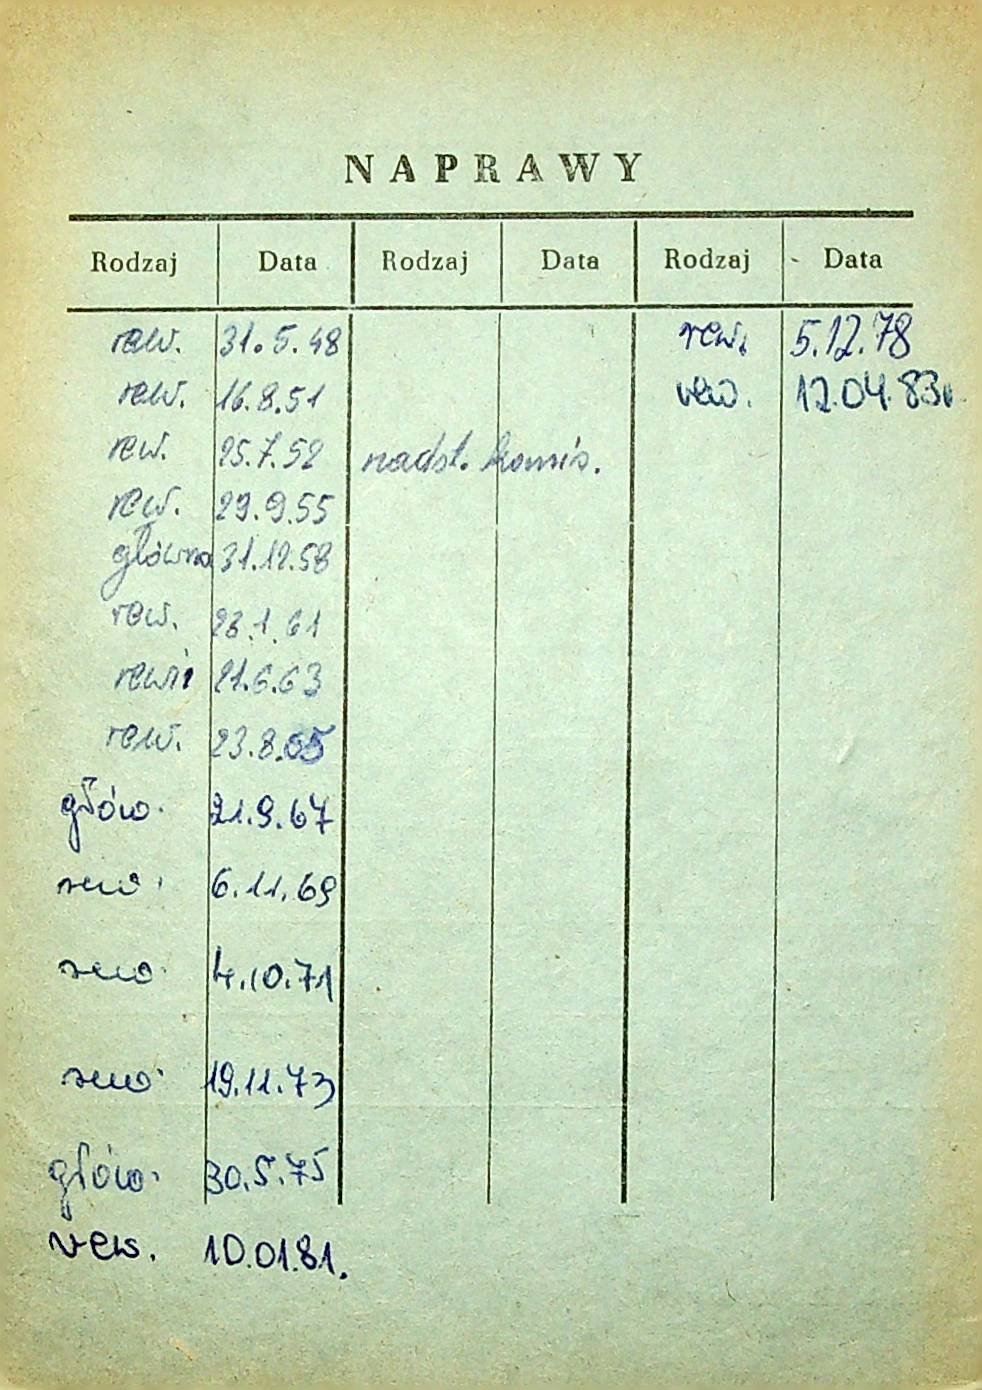 NAPRAWY
Rodzaj Data Rodzaj Data Rodzaj Data
rew. 31.5.48 rew. 5.12.78
rew. 16.8.51 rew. 12.04.83r.
rew. 25.7.52 nadst. komis.
rew. 29.9.55
główna 31.12.58
rew. 23.1.61
rewii 21.6.63
rew. 23.8.65
głów. 21.9.67
rew. 6.11.69
rew. 4.10.71
rew. 19.11.73
głów. 30.5.75
rew. 10.01.81.